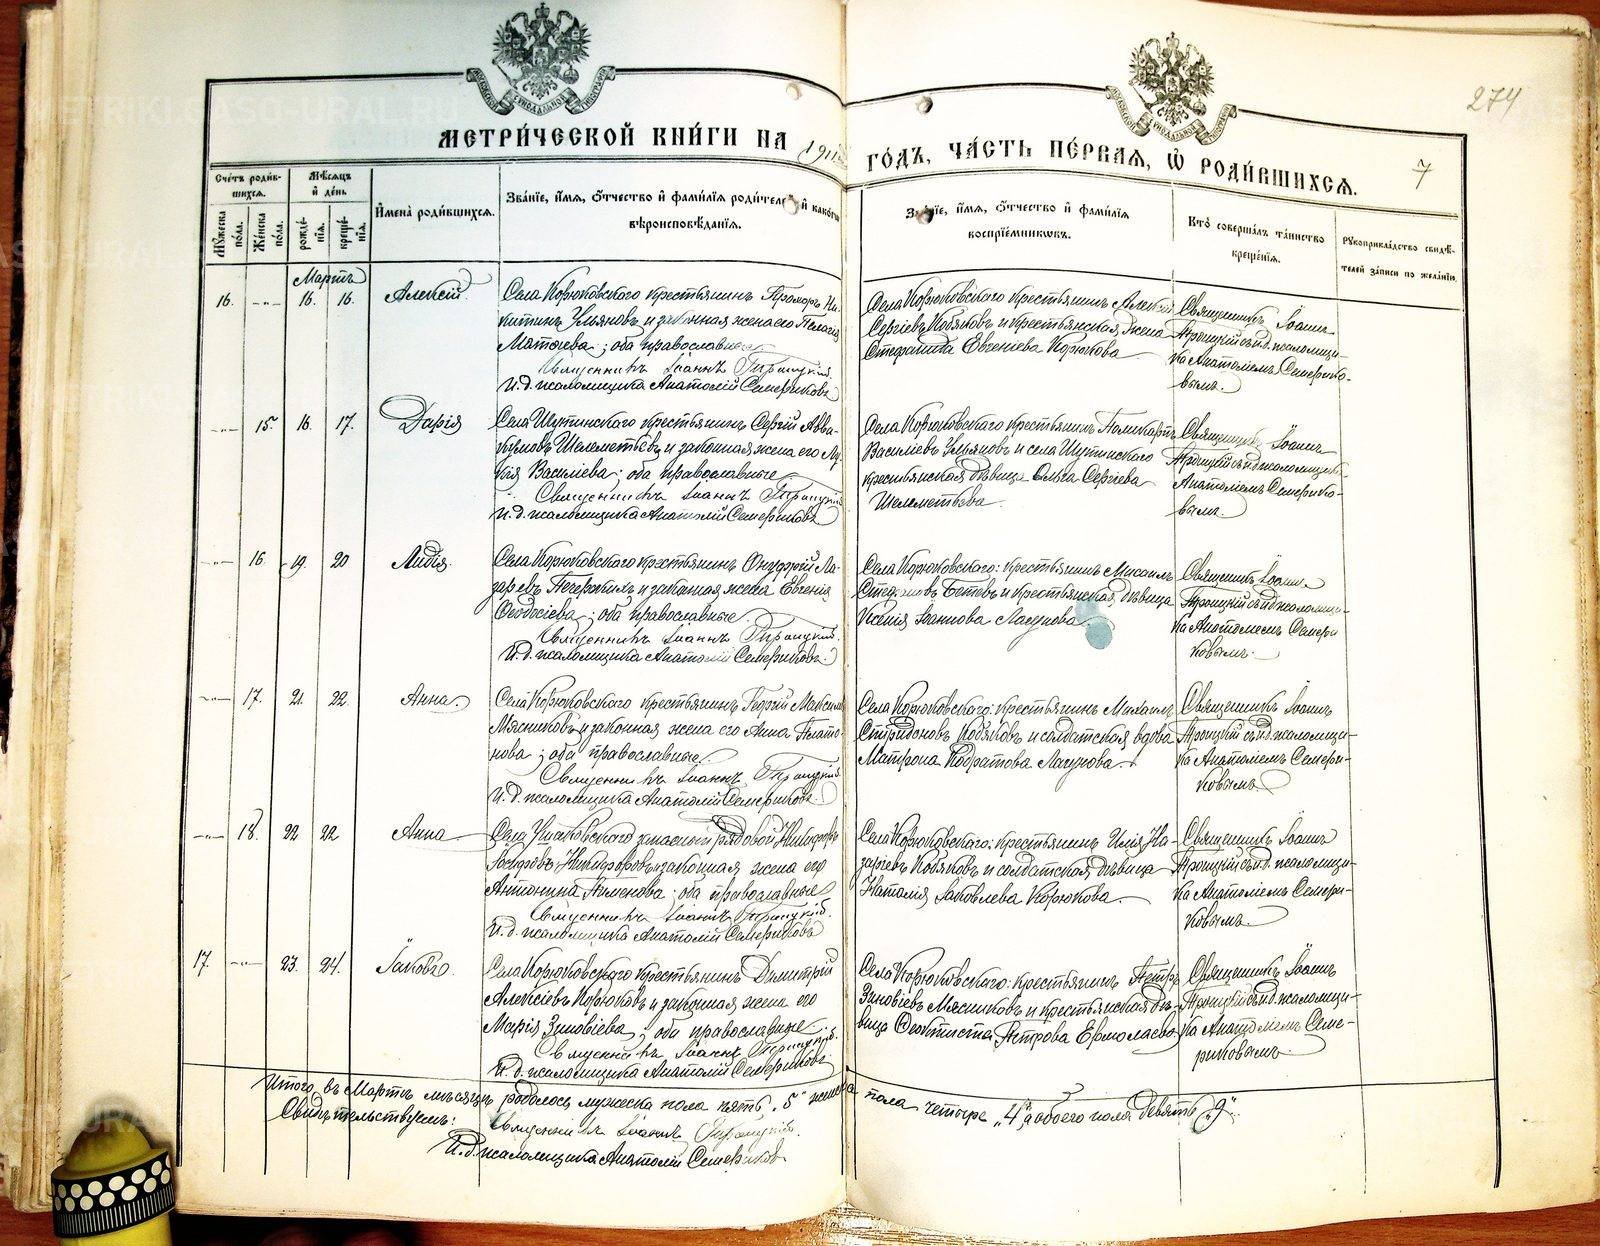 METRIKI.GASO-URAL.RU
274
МЕТРИ́ЧЕСКОЙ КНИ́ГИ НА 1911
ГО́ДЪ, ЧА́СТЬ ПЕ́РВАЯ, Ѽ РОДИ́ВШИХСЯ.
7
Сче́тъ роди́вшихся.
Мꙋ́жеска по́ла.
Же́нска по́ла.
Мѣ́сяцъ и де́нь
рожде́нія.
креще́нія.
Имена̀ роди́вшихся.
Зва́ніе, и́мя, ѻ҆́тчество и҆ фами́лія роди́телей, и҆ како́гѡ
вѣроисповѣ́данія.
Зва́ніе, и́мя, ѻ҆́тчество и҆ фами́лія
воспріе́мникѡвъ.
Кто̀ соверша́лъ та́инство
креще́нія.
Рꙋкоприкла́дство свидѣ́-
телей за́писи по жела́нію.
Мартъ
16. -„- 16. 16. Алексій.
Села Корюковскаго крестьянинъ Ни-
китинъ Ульяновъ и законная жена его Пелагія
Матѳіева; оба православные
Священникъ Іоаннъ Троицкій
И. д. псаломщика Анатолій Семериковъ
Села Корюковскаго крестьянинъ Алексій
Сергіевъ Кобяковъ и крестьянская жена
Стефанида Евгеніева Корюкова
Священникъ Іоаннъ
Троицкій съ и.д. псаломщи-
ка Анатоліемъ Семерико-
вымъ.
-„- 15. 16. 17. Дарія
Села Щутинскаго крестьянинъ Сергій Авва-
кумовъ Шелеметьевъ и законная жена его Лу-
кія Василіева; оба православные
Священникъ Іоаннъ Троицкій
И. д. псаломщика Анатолій Семериковъ
Села Корюковскаго крестьянинъ Поликарпъ
Василіевъ Ульяновъ и села Щутинскаго
крестьянская дѣвица Ольга Сергіева
Шелеметьева
Священникъ Іоаннъ
Троицкій съ и.д. псаломщика
Анатоліемъ Семерико-
вымъ.
-„- 16. 19. 20 Лидія.
Села Корюковскаго крестьянинъ Онуфрій Ла-
заревъ и законная жена Евгенія
Ѳеодосіева; оба православные.
Священникъ Іоаннъ Троицкій.
И. д. псаломщика Анатолій Семериковъ.
Села Корюковскаго: крестьянинъ Михаилъ
Стефановъ Бетевъ и крестьянская дѣвица
Ксенія Іоаннова Лагунова
Священникъ Іоаннъ
Троицкій съ и.д. псаломщи-
ка Анатоліемъ Семери
ковымъ.
-„- 17. 21. 22. Анна.
Села Корюковскаго крестьянинъ Георгій Максим.
Мясниковъ и законная жена его Анна Плато-
нова; оба православные.
Священникъ Іоаннъ Троицкій
И. д. псаломщика Анатолій Семериковъ.
Села Корюковскаго: крестьянинъ Михаилъ
Спиридоновъ Кобяковъ и солдатская вдова
Матрона Кодратова Лагунова.
Священникъ Іоаннъ
Троицкій съ и.д. псаломщи-
ка Анатоліемъ Семери-
ковымъ.
-„- 18. 22 22 Анна
Села Ушаковскаго запасный рядовой Никифоръ
Никифоровъ и законная жена его
Антонина; оба православные
Священникъ Іоаннъ Троицкій.
И. д. псаломщика Анатолій Семериковъ
Села Корюковскаго: крестьянинъ Илія На-
заріевъ Кобяковъ и солдатская дѣвица
Наталія Іаковлева Корюкова.
Священникъ Іоаннъ
Троицкій съ и.д. псаломщи-
ка Анатоліемъ Семери-
ковымъ.
17. -„- 23. 24. Іаковъ.
Села Корюковскаго крестьянинъ Димитрій
Алексіевъ Корюковъ и законная жена его
Марія Зиновіева; оба православные.
Священникъ Іоаннъ Троицкій.
И. д. псаломщика Анатолій Семериковъ.
Села Корюковскаго: крестьянинъ Петръ
Зиновіевъ Мясниковъ и крестьянская дѣ-
вица Ѳеоктиста Петрова Ермолаева
Священникъ Іоаннъ
Троицкій съ и.д. псаломщи-
ка Анатоліемъ Семе-
риковымъ.
Итого, въ Мартѣ мѣсяцѣ родилось мужеска пола пять „5“ женска пола четыре „4“, а обоего пола девять „9“.
Свидѣтельствуемъ: Священникъ Іоаннъ Троицкій.
И. д. псаломщика Анатолій Семериковъ